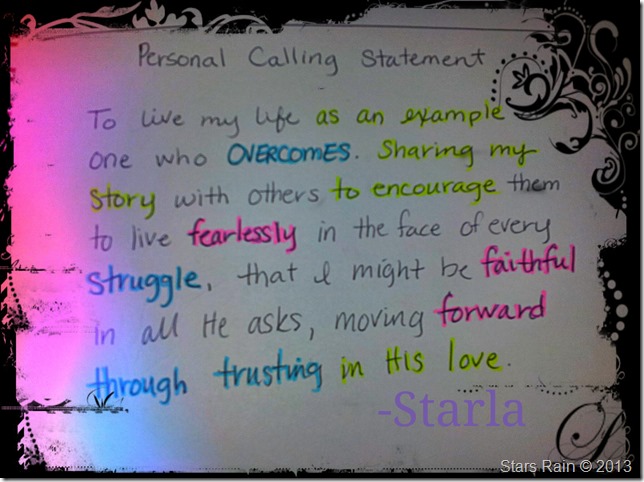 Personal Calling Statement
To live my life as an example
one who OVERCOMES. Sharing my
story with others to encourage them
to live fearlessly in the face of every
struggle, that I might be faithful
in all He asks, moving forward
through trusting in His love.
-Starla
Stars Rain © 2013